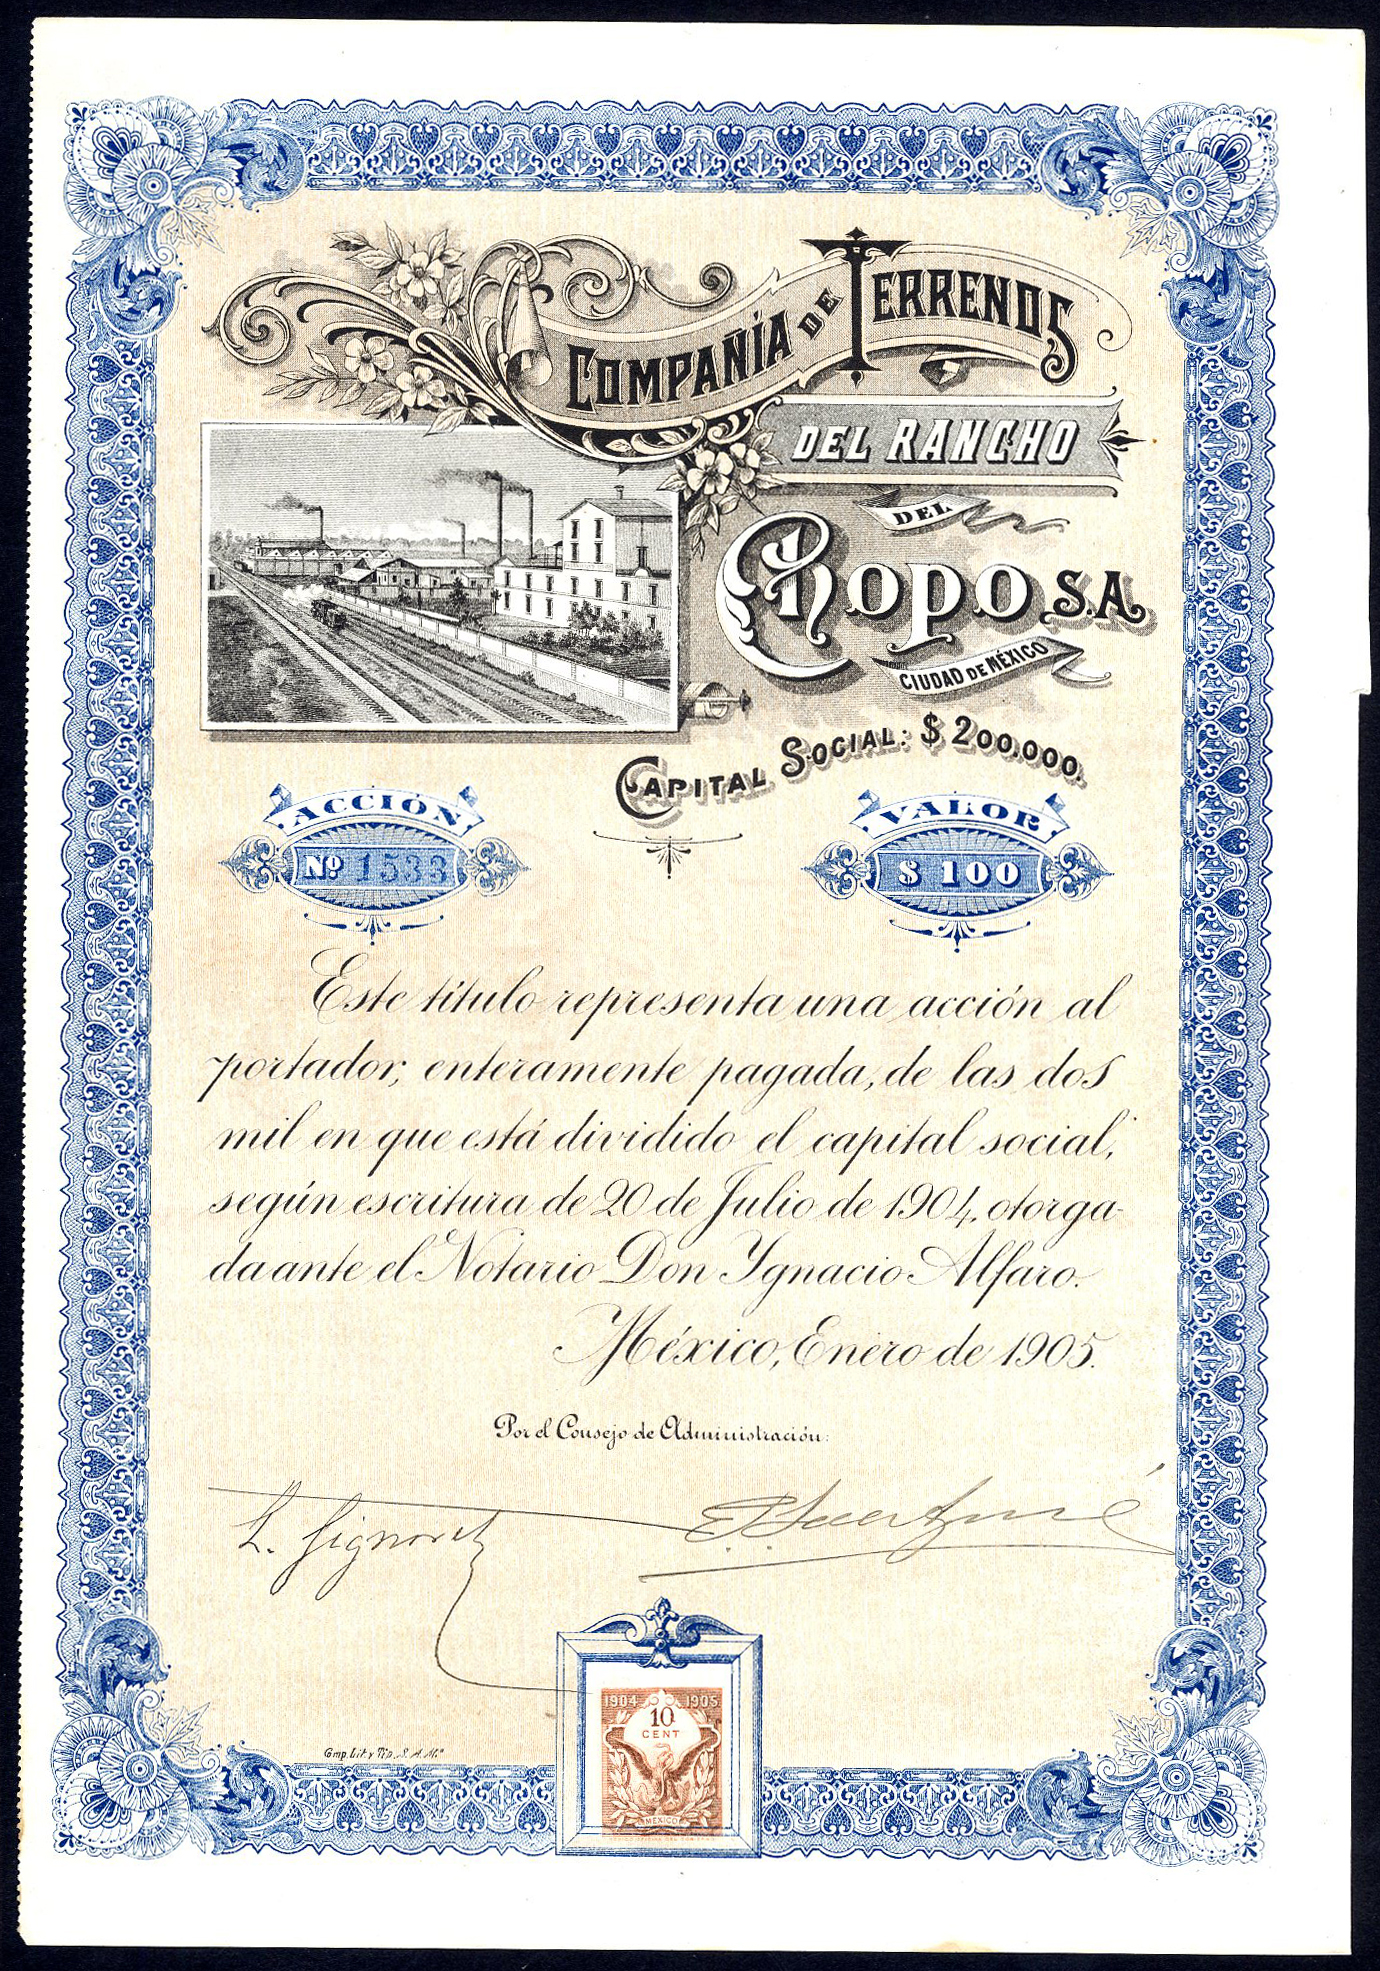 COMPAÑÍA DE TERRENOS
DEL RANCHO
DEL
CHOPO S.A.
CIUDAD DE MÉXICO
CAPITAL SOCIAL: $ 200.000.
ACCIÓN
Nº 1533
VALOR
$ 100
Este título representa una acción al
portador, enteramente pagada, de las dos
mil en que está dividido el capital social,
según escritura de 20 de Julio de 1904, otorga-
da ante el Notario Don Ygnacio Alfaro.
México, Enero de 1905.
Por el Consejo de Administración:
L. Signoret
1904 1905
10
CENT
MEXICO